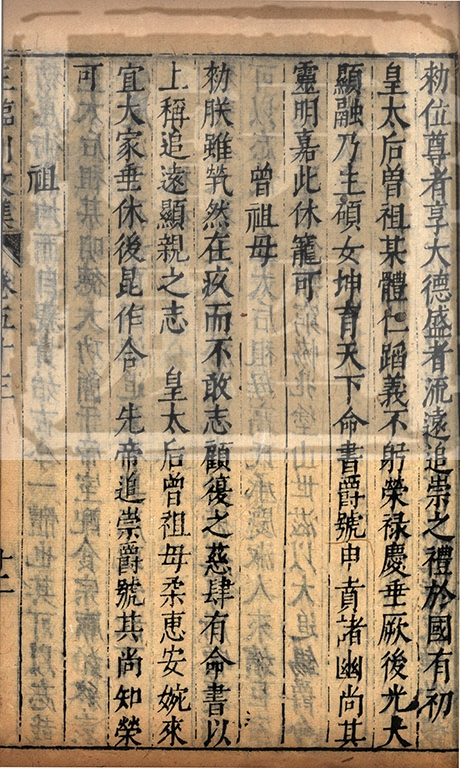 勑位尊者享大德盛者流遠追崇之禮於國有初
皇太后曽祖某體仁蹈義不躬榮禄慶垂厥後光大
顯融乃生碩女坤育天下命書爵號申賁諸幽尚其
靈明嘉此休寵可
曽祖母
勑朕雖煢然在疚而不敢志顧復之慈肆有命書以
上稱追遠顯親之志 皇太后曽祖母柔恵安婉來
宜大家垂休後昆作合 先帝追崇爵號其尚知榮
可
祖
王臨川文集 卷五十三 十二